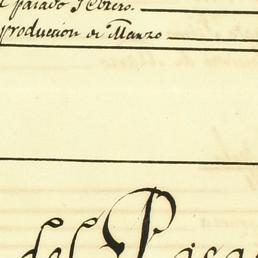 pasado Febrero.
produccion de Marzo
del Pasa